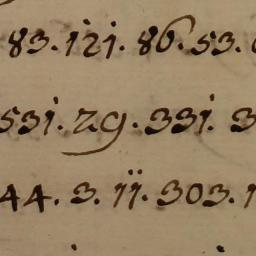 83. 121. 86. 53.
531. 29. 331. 3
44. 3. 11. 303. 1